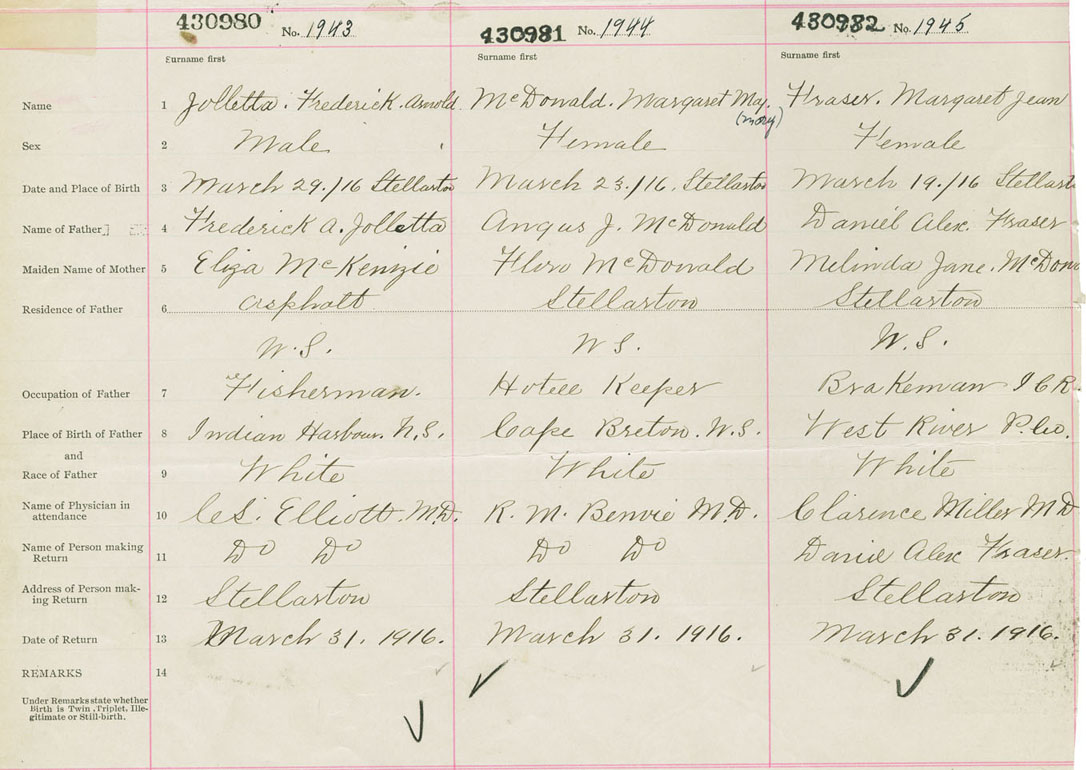 430980 No. 1943 430981 No. 1944 430982 No. 1945
Surname first Surname first Surname first
Name 1 Jolletta. Frederick. Arnold McDonald. Margaret May. Fraser. Margaret Jean
(mary)
Sex 2 Male Female Female
Date and Place of Birth 3 March 29./16 Stellarton March 23./16. Stellarton March 19./16 Stellart
Name of Father 4 Frederick A. Jolletta Angus J. McDonald Daniel Alex. Fraser
Maiden Name of Mother 5 Eliza McKenzie McDonald Melinda Jane. McDon
Residence of Father 6 Asphalt Stellarton Stellarton
N.S. N.S. N.S.
Occupation of Father 7 Fisherman. Keeper Brakeman I C R.
Place of Birth of Father 8 Indian Harbour. N.S. Cape Breton. N.S. West River P. Co.
and
Race of Father 9 White White White
Name of Physician in
attendance 10 Elliott. M.D. R. M. Benvie M.D. Clarence Miller M D
Name of Person making
Return 11 Do Do Do Do Daniel Alex Fraser.
Address of Person mak-
ing Return 12 Stellarton Stellarton Stellarton
Date of Return 13 March 31. 1916. March 31. 1916. March 31. 1916.
REMARKS 14
Under Remarks state whether
Birth is Twin, Triplet, Ille-
gitimate or Still-birth.